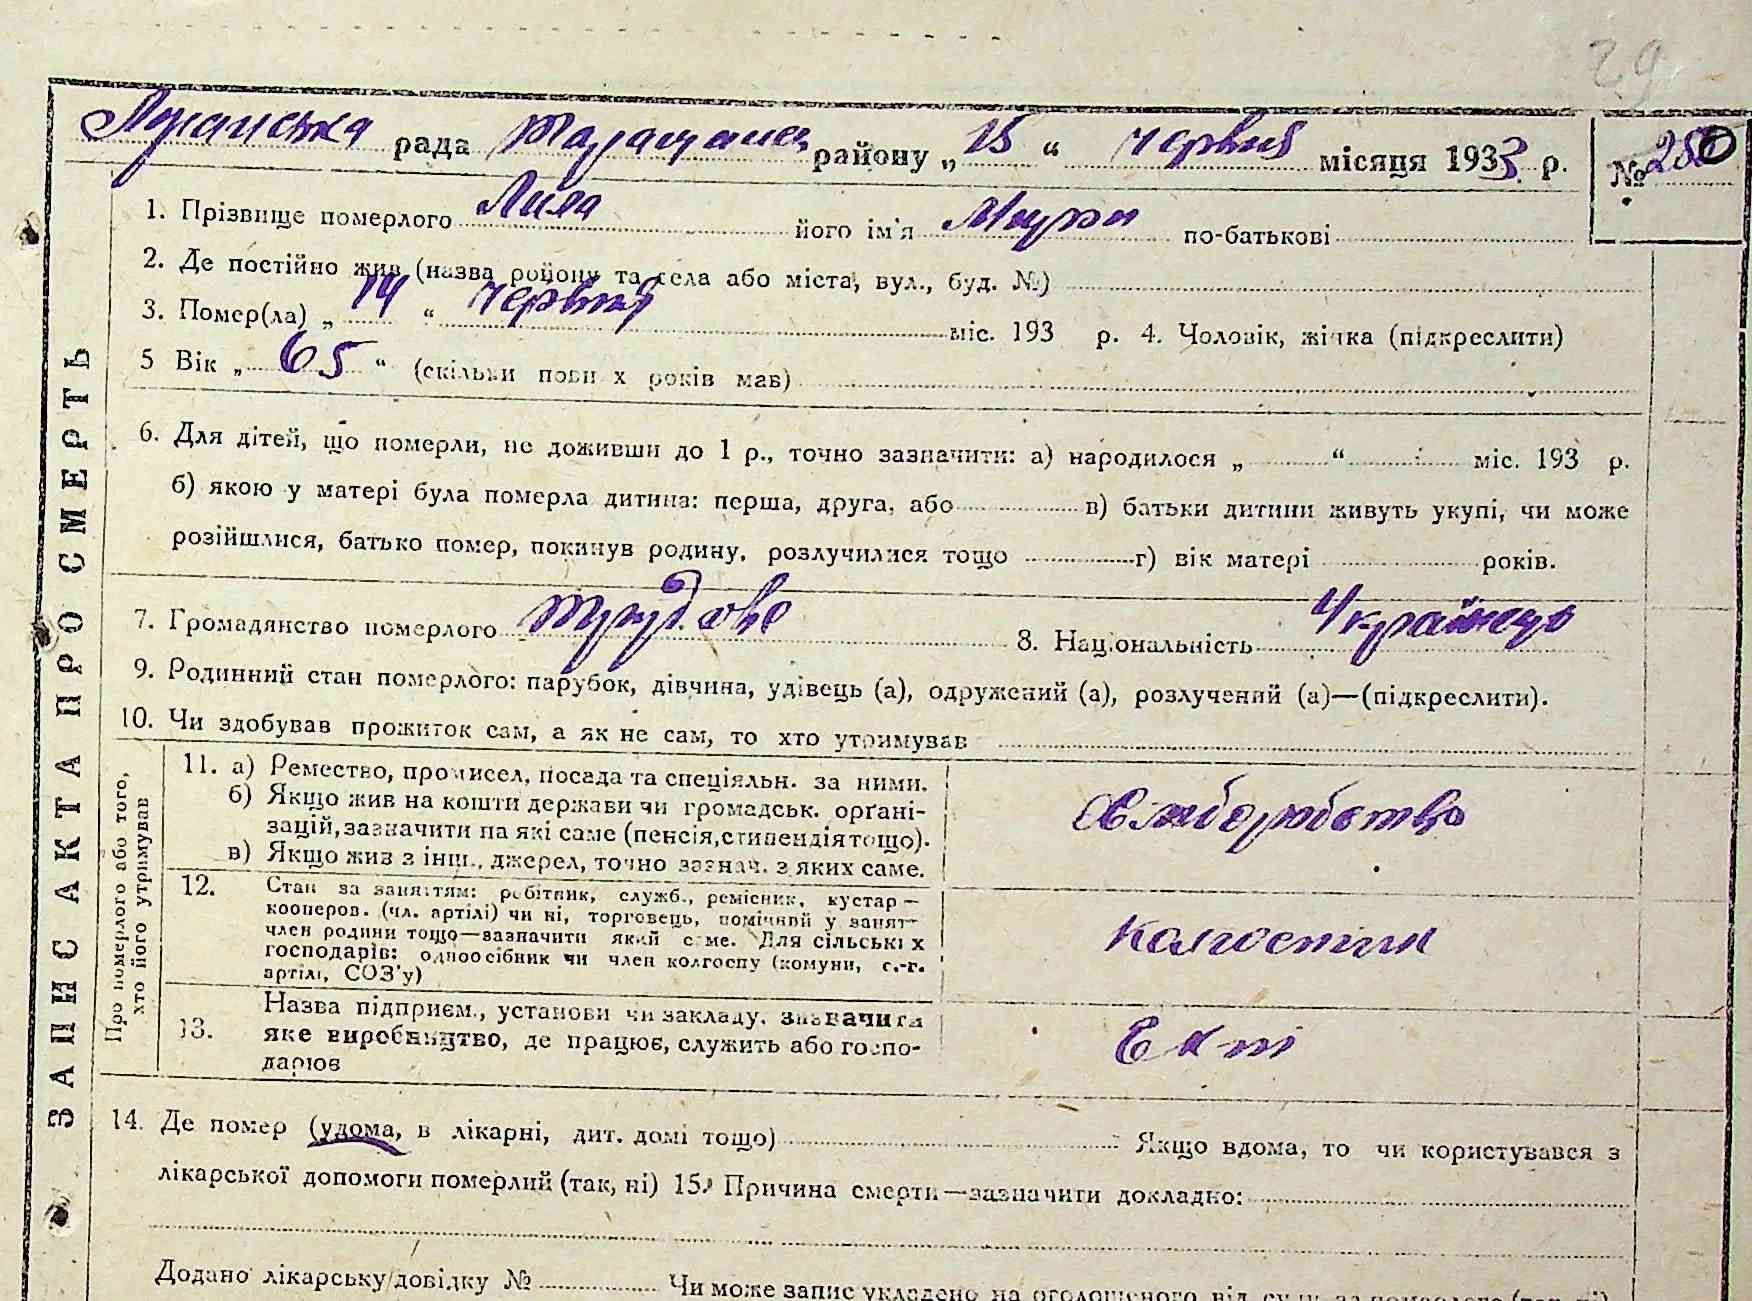 29
Луканська рада Таращанськ району „ 15 “ червня місяця 1933 р. № 250
1. Прізвище померлого Лила його ім'я Мирон по-батькові
2. Де постійно жив (назва району та села або міста, вул., буд. №)
3. Помер(ла) „ 14 “ червня міс. 193 р. 4. Чоловік, жінка (підкреслити)
5 Вік „ 65 “ (скільки повних років мав)
6. Для дітей, що померли, не доживши до 1 р., точно зазначити: а) народилося „ “ міс. 193 р.
б) якою у матері була померла дитина: перша, друга, або в) батьки дитини живуть укупі, чи може
розійшлися, батько помер, покинув родину, розлучилися тощо г) вік матері років.
7. Громадянство померлого трудове 8. Національність Українець
9. Родинний стан померлого: парубок, дівчина, удівець (а), одружений (а), розлучений (а)—(підкреслити).
10. Чи здобував прожиток сам, а як не сам, то хто утримував
Про померлого або того,
хто його утримував
11. а) Ремество, промисел, посада та спеціяльн. за ними.
б) Якщо жив на кошти держави чи громадськ. орґані-
зацій, зазначити на які саме (пенсія, стипендія тощо).
в) Якщо жив з інш., джерел, точно зазнач. з яких саме.
Хліборобство
12. Стан за заняттям: робітник, служб., ремісник, кустар—
кооперов. (чл. артілі) чи ні, торговець, помічний у занят—
член родини тощо—зазначити який саме. Для сільських
господарів: одноосібник чи член колгоспу (комуни, с.-г.
артілі, СОЗ'у)
колгоспник
13. Назва підприєм., установи чи закладу, зазначити
яке виробництво, де працює, служить або госпо-
дарює
14. Де помер (удома, в лікарні, дит. домі тощо) Якщо вдома, то чи користувався з
лікарської допомоги померлий (так, ні) 15. Причина смерти—зазначити докладно:
Додано лікарську довідку № Чи може запис укладено на оголошеного від суду за померлого (так, ні)
ЗАПИС АКТА ПРО СМЕРТЬ